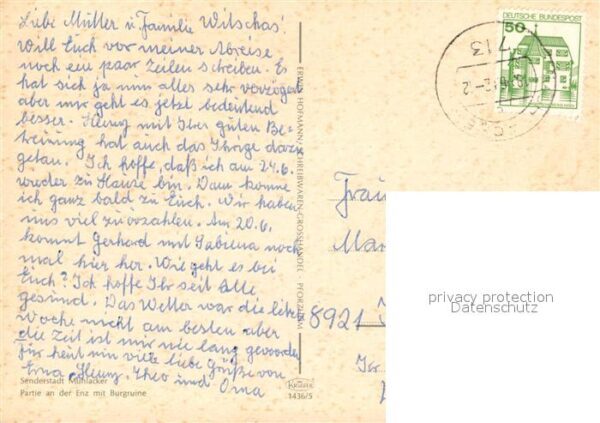 Liebe Mutter u. Familie Witschas!
Will Euch vor meiner Abreise
noch ein paar Zeilen schreiben. Es
hat sich ja nun alles sehr verzögert
aber mir geht es jetzt bedeutend
besser. Heinz mit Ihrer guten Be-
treuung hat auch das Ihrige dazu
getan. Ich hoffe, daß ich am 24.6.
wieder zu Hause bin. Dann komme
ich ganz bald zu Euch. Wir haben
uns viel zu erzählen. Am 20.6.
kommt Gerhard mit Sabiena noch
mal hier her. Wie geht es bei
Euch? Ich hoffe Ihr seit Alle
gesund. Das Wetter war die letzte
Woche nicht am besten aber
die Zeit ist mir nie lang geworden
für heut nun viele liebe Grüße von
Erna Heinz, Theo und Oma
Senderstadt Mühlacker
Partie an der Enz mit Burgruine
ERWIN HOFMANN/SCHREIBWAREN-GROSSHANDEL PFORZHEIM
Krüger
1436/5
DEUTSCHE BUNDESPOST
50
713
Frau
8921
privacy protection
Datenschutz